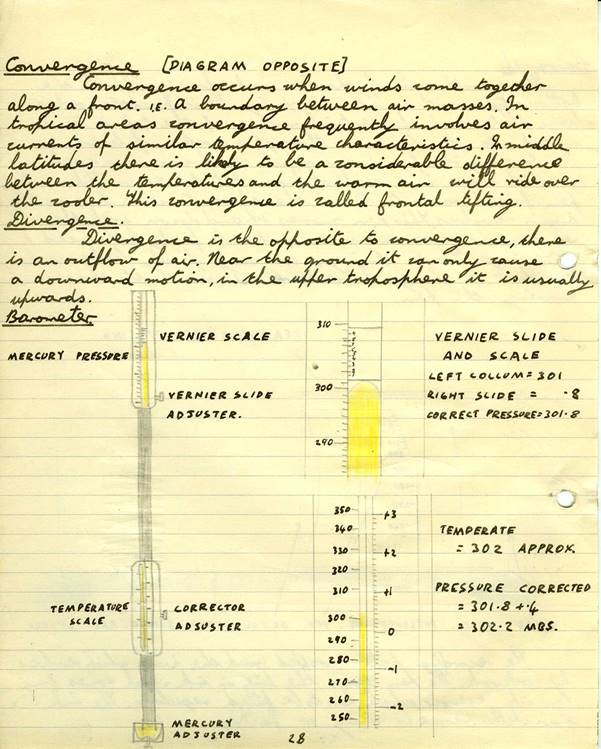 Convergence [DIAGRAM OPPOSITE]
Convergence occurs when winds come together
along a front. I.E. A boundary between air masses. In
tropical areas convergence frequently involves air
currents of similar temperature characteristics. In middle
latitudes there is likely to be a considerable difference
between the temperatures and the warm air will ride over
the cooler. This convergence is called frontal lifting.
Divergence.
Divergence is the opposite to convergence, there
is an outflow of air. Near the ground it can only cause
a downward motion, in the upper troposphere it is usually
upwards.
Barometer
VERNIER SCALE
MERCURY PRESSURE
VERNIER SLIDE
ADJUSTER.
310
300
290
VERNIER SLIDE
AND SCALE
LEFT COLLUM = 301
RIGHT SLIDE = .8
CORRECT PRESSURE = 301.8
TEMPERATURE
SCALE
CORRECTOR
ADJUSTER
MERCURY
ADJUSTER
350
340
330
320
310
300
290
280
270
260
250
+3
+2
+1
0
-1
-2
TEMPERATE
= 302 APPROX.
PRESSURE CORRECTED
= 301.8 + .4
= 302.2 MBS.
28